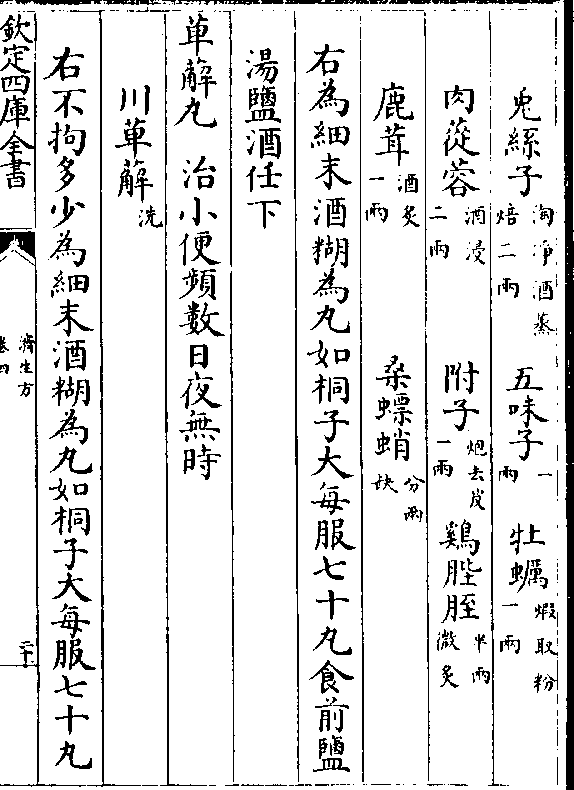 兎絲子淘净酒蒸焙二兩 五味子一兩 牡蠣煆取粉一兩
肉蓯蓉酒浸二兩 附子炮去皮一兩 鷄膍胵半兩微炙
鹿茸酒炙一兩 桑螵蛸分兩缺
右為細末酒糊為丸如桐子大每服七十丸食前鹽
湯鹽酒任下
萆解丸 治小便頻數日夜無時
川萆解洗
右不拘多少為細末酒糊為丸如桐子大每服七十丸
欽定四庫全書 濟生方卷四 二十